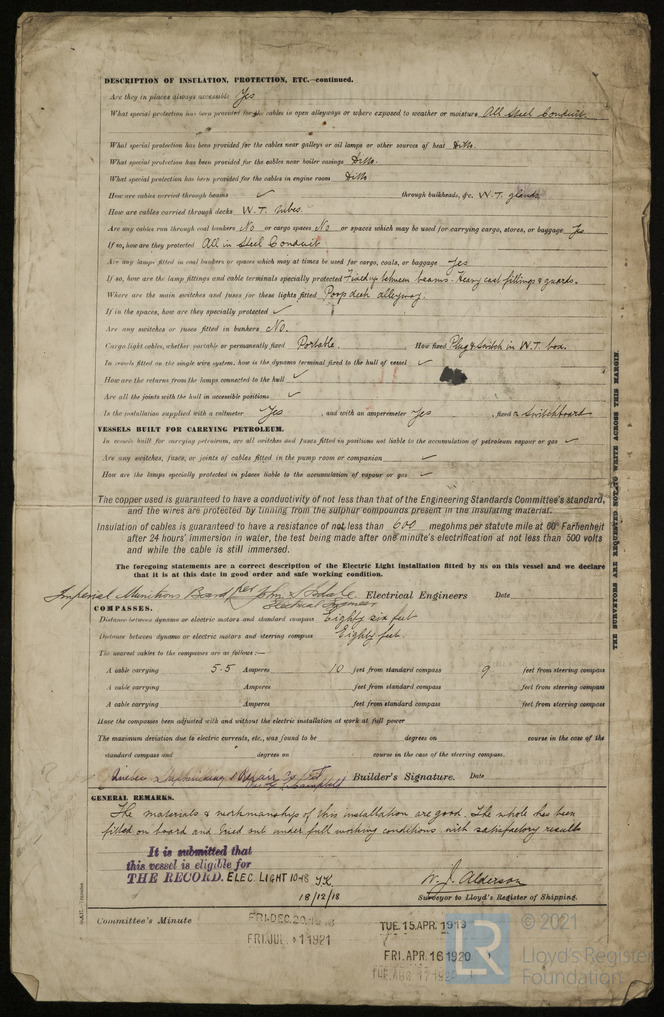 DESCRIPTION OF INSULATION, PROTECTION, ETC.—continued.
Are they in places always accessible Yes
What special protection has been provided for the cables in open alleyways or where exposed to weather or moisture All Steel Conduit.
What special protection has been provided for the cables near galleys or oil lamps or other sources of heat Ditto.
What special protection has been provided for the cables near boiler casings Ditto.
What special protection has been provided for the cables in engine room Ditto
How are cables carried through beams ✓ through bulkheads, &c. W.T. glands
How are cables carried through decks W.T. tubes.
Are any cables run through coal bunkers No or cargo spaces No or spaces which may be used for carrying cargo, stores, or baggage Yes
If so, how are they protected All in Steel Conduit
Are any lamps fitted in coal bunkers or spaces which may at times be used for cargo, coals, or baggage Yes
If so, how are the lamp fittings and cable terminals specially protected Fixed up between beams. Heavy cast fittings & guards.
Where are the main switches and fuses for these lights fitted Poop deck alleyway.
If in the spaces, how are they specially protected ✓
Are any switches or fuses fitted in bunkers No.
Cargo light cables, whether portable or permanently fixed Portable. How fixed Plug & Switch in W.T. box.
In vessels fitted on the single wire system, how is the dynamo terminal fixed to the hull of vessel ✓
How are the returns from the lamps connected to the hull ✓
Are all the joints with the hull in accessible positions ✓
Is the installation supplied with a voltmeter Yes, and with an amperemeter Yes, fixed Switchboard
VESSELS BUILT FOR CARRYING PETROLEUM.
In vessels built for carrying petroleum, are all switches and fuses fitted in positions not liable to the accumulation of petroleum vapour or gas ✓
Are any switches, fuses, or joints of cables fitted in the pump room or companion ✓
How are the lamps specially protected in places liable to the accumulation of vapour or gas ✓
The copper used is guaranteed to have a conductivity of not less than that of the Engineering Standards Committee's standard,
and the wires are protected by tinning from the sulphur compounds present in the insulating material.
Insulation of cables is guaranteed to have a resistance of not less than 600 megohms per statute mile at 60° Farhenheit
after 24 hours' immersion in water, the test being made after one minute's electrification at not less than 500 volts
and while the cable is still immersed.
The foregoing statements are a correct description of the Electric Light installation fitted by us on this vessel and we declare
that it is at this date in good order and safe working condition.
Imperial Munitions Board per John Electrical Engineers Date
Electrical Engineer
COMPASSES.
Distance between dynamo or electric motors and standard compass Eighty six feet
Distance between dynamo or electric motors and steering compass Eighty feet.
The nearest cables to the compasses are as follows:—
A cable carrying 5.5 Amperes 10 feet from standard compass 9 feet from steering compass
A cable carrying Amperes feet from standard compass feet from steering compass
A cable carrying Amperes feet from standard compass feet from steering compass
Have the compasses been adjusted with and without the electric installation at work at full power
The maximum deviation due to electric currents, etc., was found to be degrees on course in the case of the
standard compass and degrees on course in the case of the steering compass.
Quebec Shipbuilding & Repair Co Builder's Signature. Date
Campbell
GENERAL REMARKS.
The materials & workmanship of this installation are good. The whole has been
fitted on board and tried out under full working conditions with satisfactory results
It is submitted that
this vessel is eligible for
THE RECORD. ELEC. LIGHT 10-18 J.K.
18/12/18
W. J. Alderson
Surveyor to Lloyd's Register of Shipping.
Committee's Minute
FRI. DEC. 20 1918
TUE. 15 APR. 1919
FRI. JUL. 1 1921
FRI. APR. 16 1920
THE SURVEYORS ARE REQUESTED NOT TO WRITE ACROSS THIS MARGIN.
LR
© 2021
Lloyd's Register
Foundation